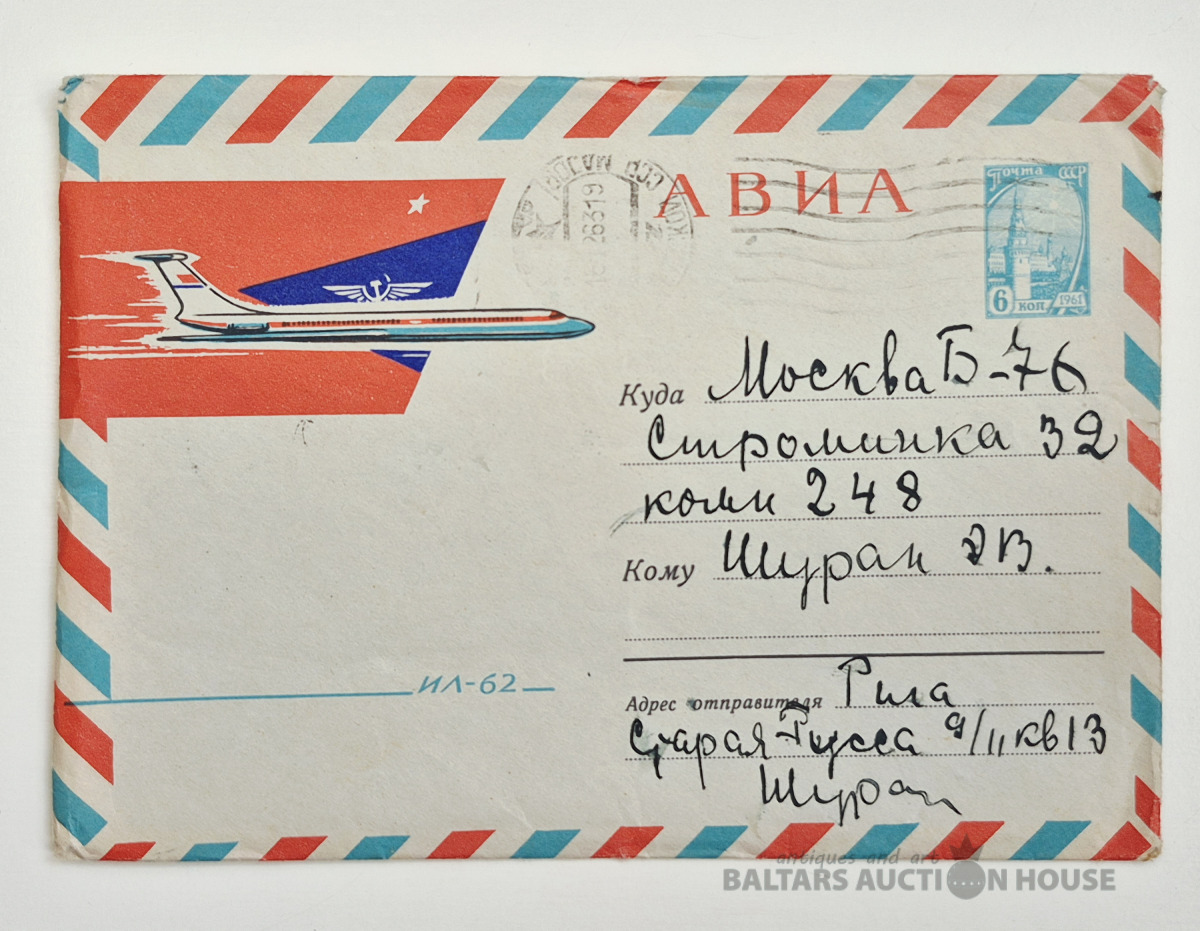 АВИА
ПОЧТА СССР
6 коп. 1961
Куда Москва Б-76
Строминка 32
комн 248
Кому Шуран ЭВ.
ИЛ-62
Адрес отправителя Рига
Старая-Русса 9/11 кв 13
Шуран
antiques and art
BALTARS AUCTION HOUSE